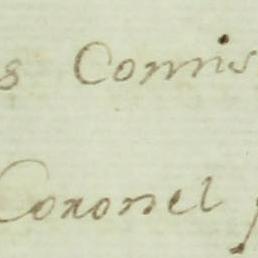 s Comis
Coronel